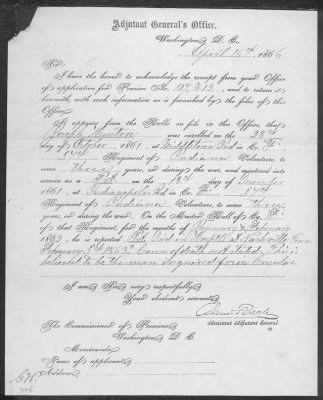 Adjutant General's Office,
Washington, D. C.,
April 15th, 1866
Sir:
I have the honor to acknowledge the receipt from your Office
of application for Pension No. 127.213, and to return it
herewith, with such information as is furnished by the files of this
Office.
It appears from the Rolls on file in this Office, that
Joseph was enrolled on the 28th
day of October, 1861, at Middletown Ind in Co.
Regiment of Indiana Volunteers, to
serve three years, or during the war, and mustered into
service as a on the day of December
1861, at Indianapolis Ind in Co.
Regiment of Indiana Volunteers, to serve three
years, or during the war. On the Muster Roll of Co.
of that Regiment, for the months of January & February
1863, he is reported Died in Hospl at Nashville Tenn
February 1863. Cause of death not stated. This is
believed to be the man inquired for in
I am, Sir, very respectfully,
Your obedient servant,
Assistant Adjutant General.
The Commissioner of Pensions,
Washington, D. C.
Memoranda:
Name of applicant,
Address,